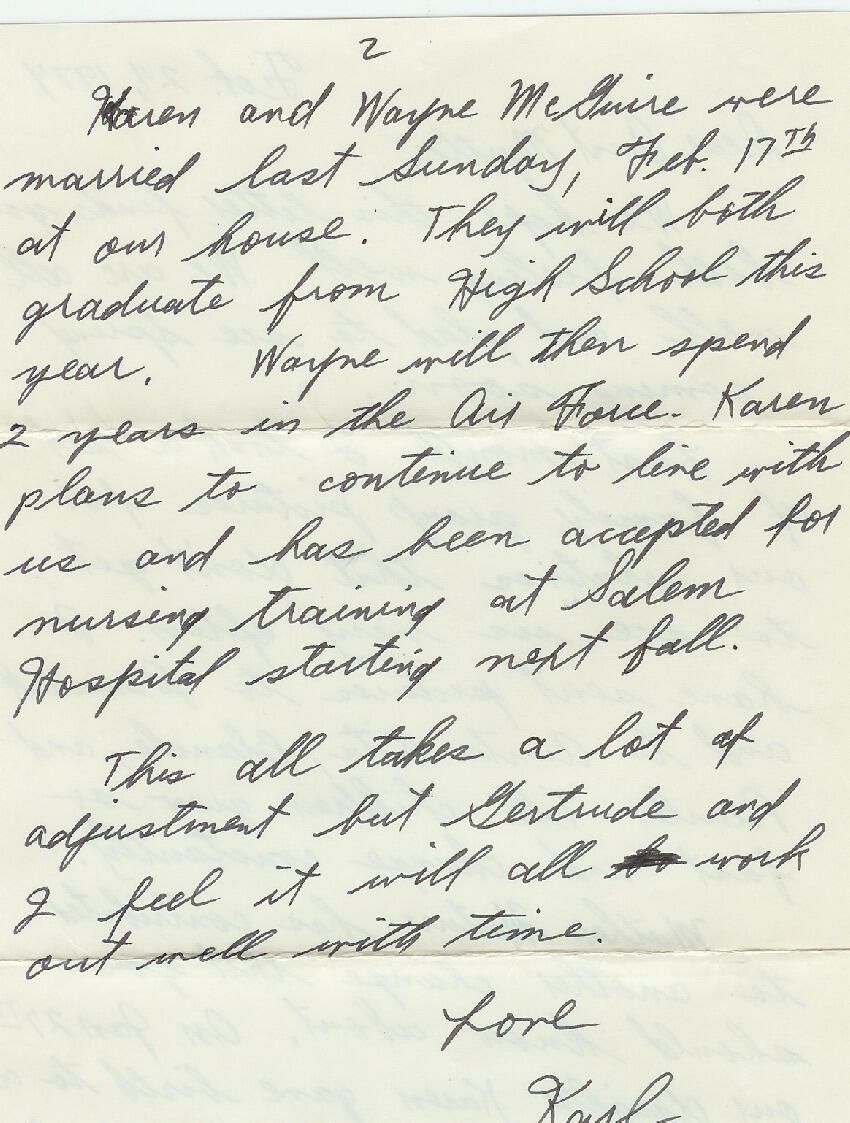 2
Karen and Wayne McGuire were
married last Sunday, Feb. 17TH
at our house. They will both
graduate from High School this
year. Wayne will then spend
2 years in the Air Force. Karen
plans to continue to live with
us and has been accepted for
nursing training at Salem
Hospital starting next fall.
This all takes a lot of
adjustment but Gertrude and
I feel it will all work
out well with time.
Love
Karl